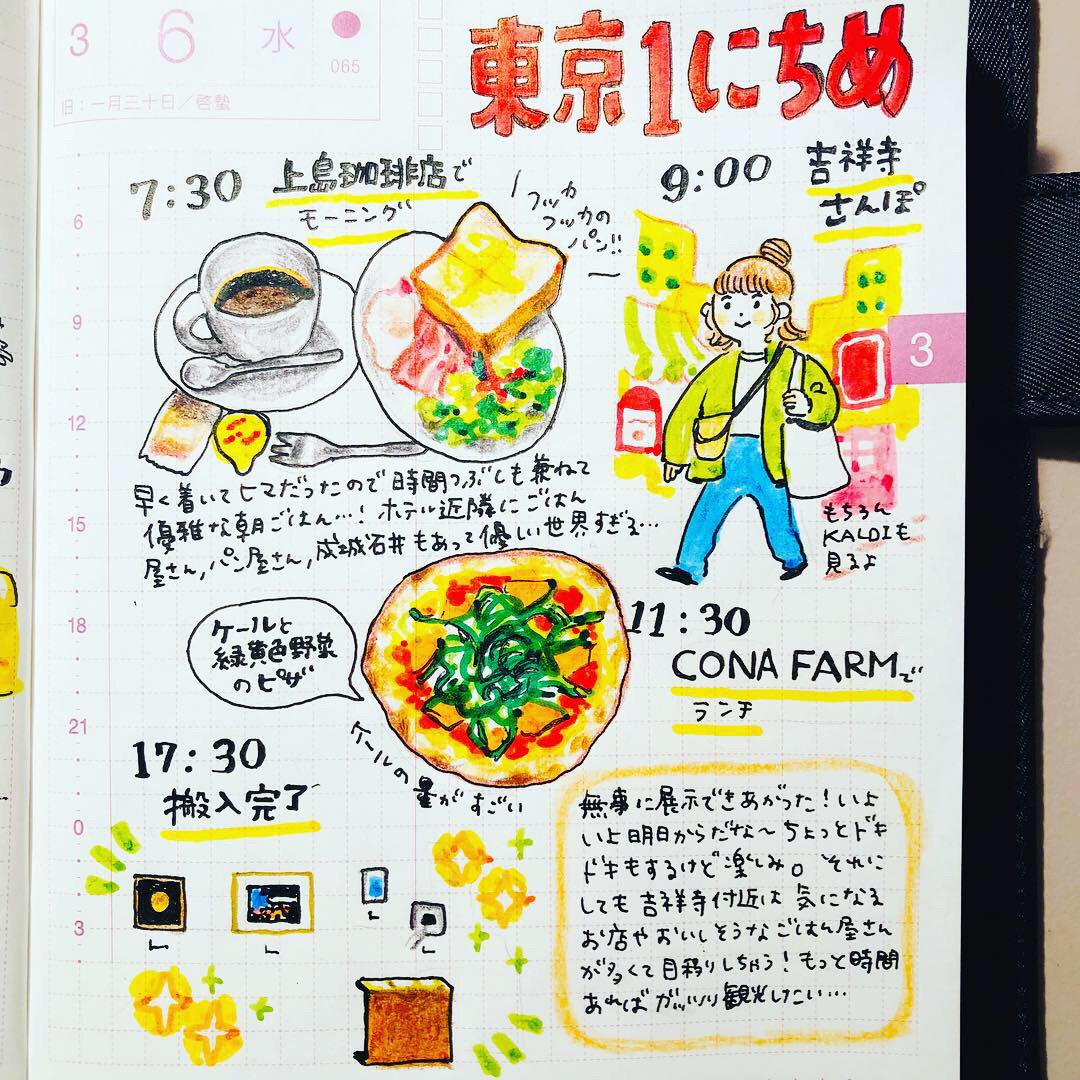 3 6 水
065
旧:一月三十日/啓蟄
東京1にちめ
7:30 上島珈琲店で
モーニング
フッカ
フッカの
パン!!
9:00 吉祥寺
さんぽ
6
9
12
15
18
21
0
3
3
早く着いてヒマだったので時間つぶしも兼ねて
優雅な朝ごはん…! ホテル近隣にごはん
屋さん,パン屋さん,成城石井もあって優しい世界すぎる…
もちろん
KALDIも
見るよ
ケールと
緑黄色野菜
のピザ
ケールの量がすごい
11:30
CONA FARMで
ランチ
17:30
搬入完了
無事に展示できあがった!いよ
いよ明日からだな〜ちょっとドキ
ドキもするけど楽しみ。それに
しても吉祥寺付近は気になる
お店やおいしそうなごはん屋さん
が多くて目移りしちゃう!もっと時間
あればガッツリ観光したい…